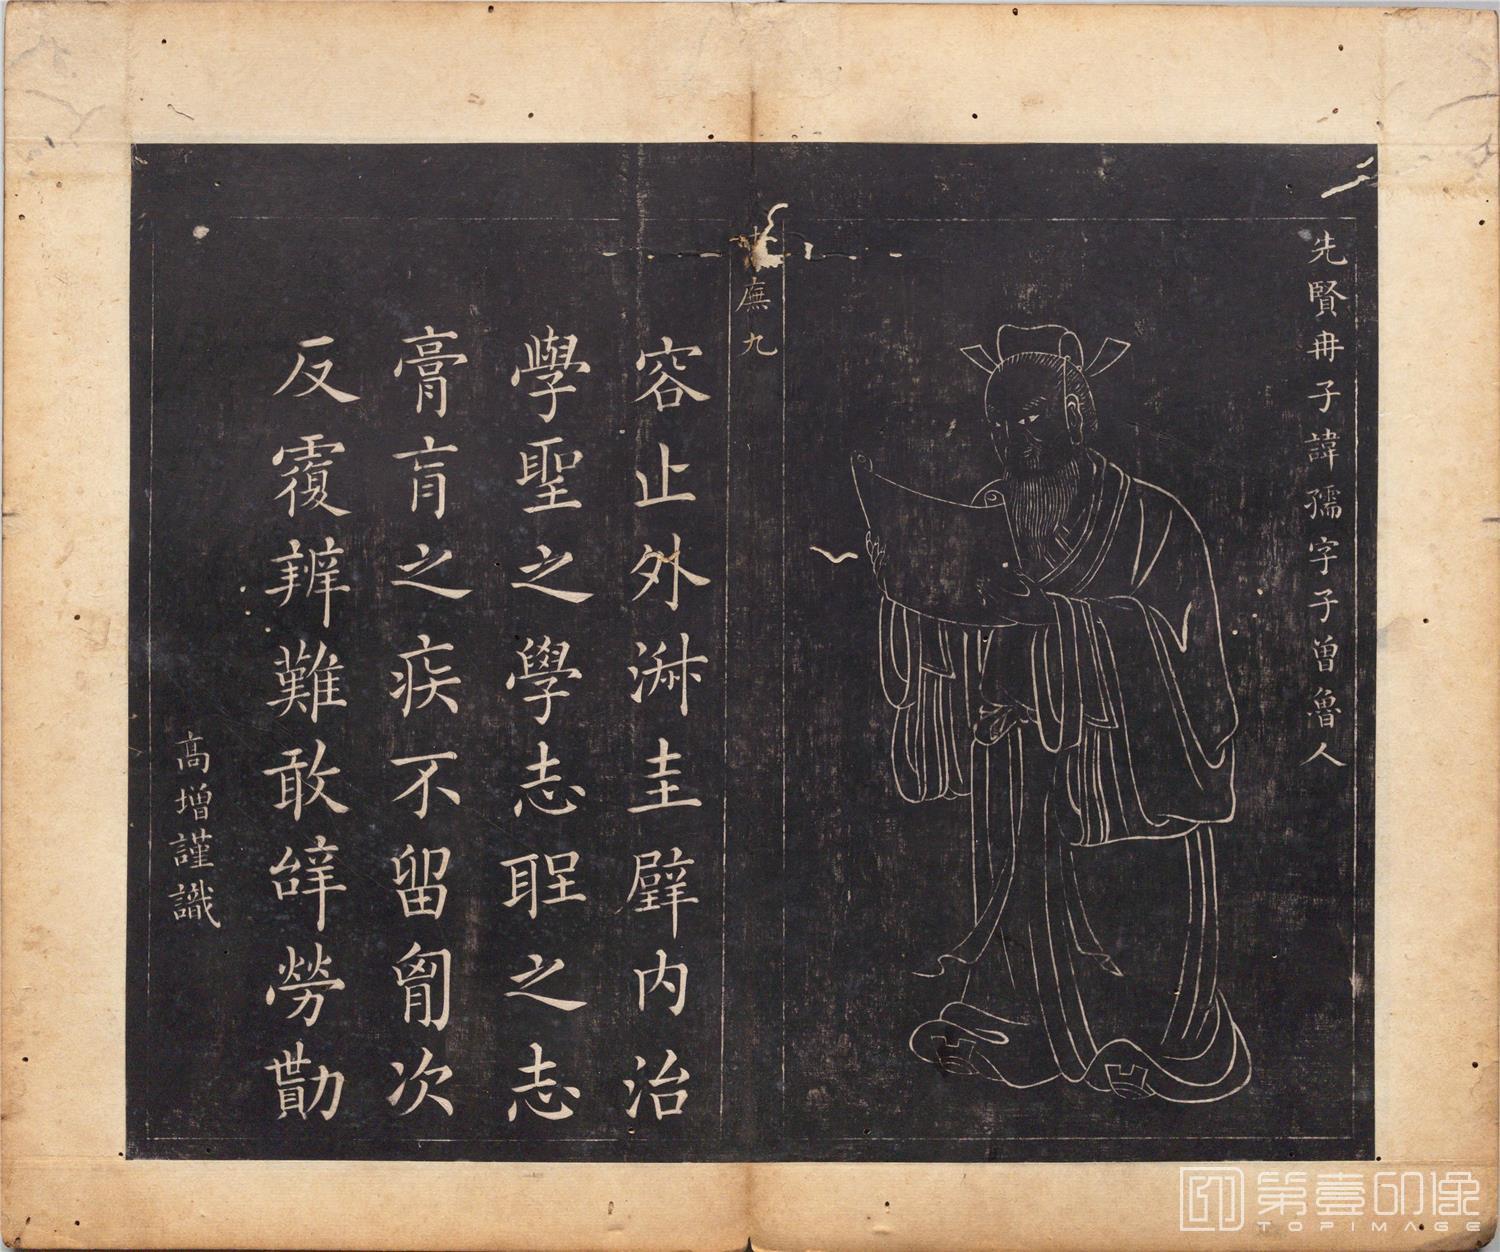 先賢冉子諱孺字子曾魯人
廡九
容止外淋圭璧内治
學聖之學志聖之志
膏肓之疾不留胷次
反覆辨難敢辭勞勩
高增謹識
第壹印像
TOPIMAGE